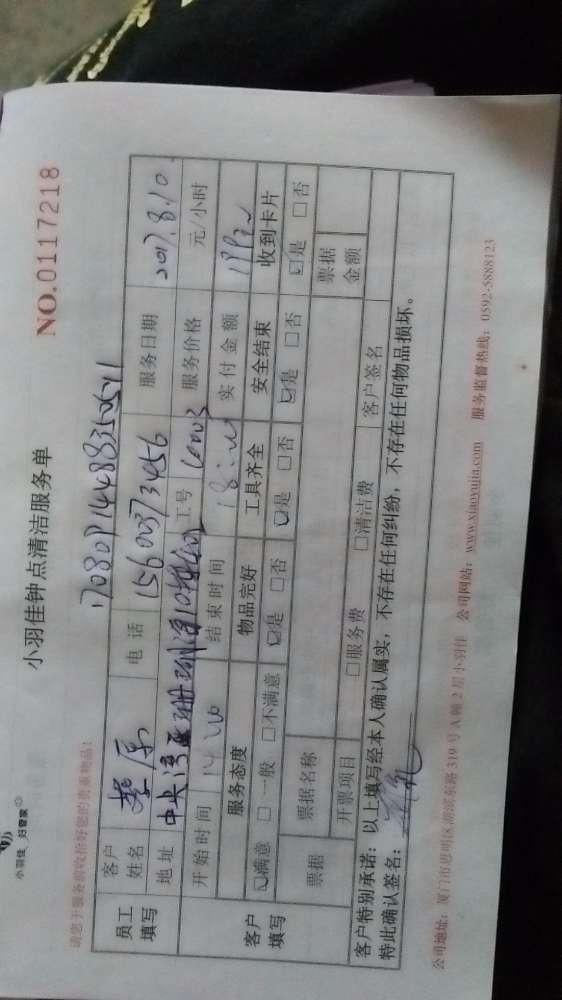 小羽佳 好管家
小羽佳钟点清洁服务单
NO.0117218
请您于服务前收拾好您的贵重物品!
17080914488350511
员工填写
客户姓名
电话 15600373456
服务日期 2017.8.10
地址 中央湾区珊瑚海10栋
工号
服务价格 元/小时
开始时间 14:00
结束时间 18:00
实付金额
客户填写
服务态度 物品完好 工具齐全 安全结束 收到卡片
☑满意 □一般 □不满意 ☑是 □否 ☑是 □否 ☑是 □否 ☑是 □否
票据 票据名称 票据金额
开票项目 □服务费 □清洁费 客户签名
客户特别承诺:以上填写经本人确认属实,不存在任何纠纷,不存在任何物品损坏。
特此确认签名:
公司地址:厦门市思明区湖滨东路319号A幢2层小羽佳 公司网站:www.xiaoyujia.com 服务监督热线:0592-5888123